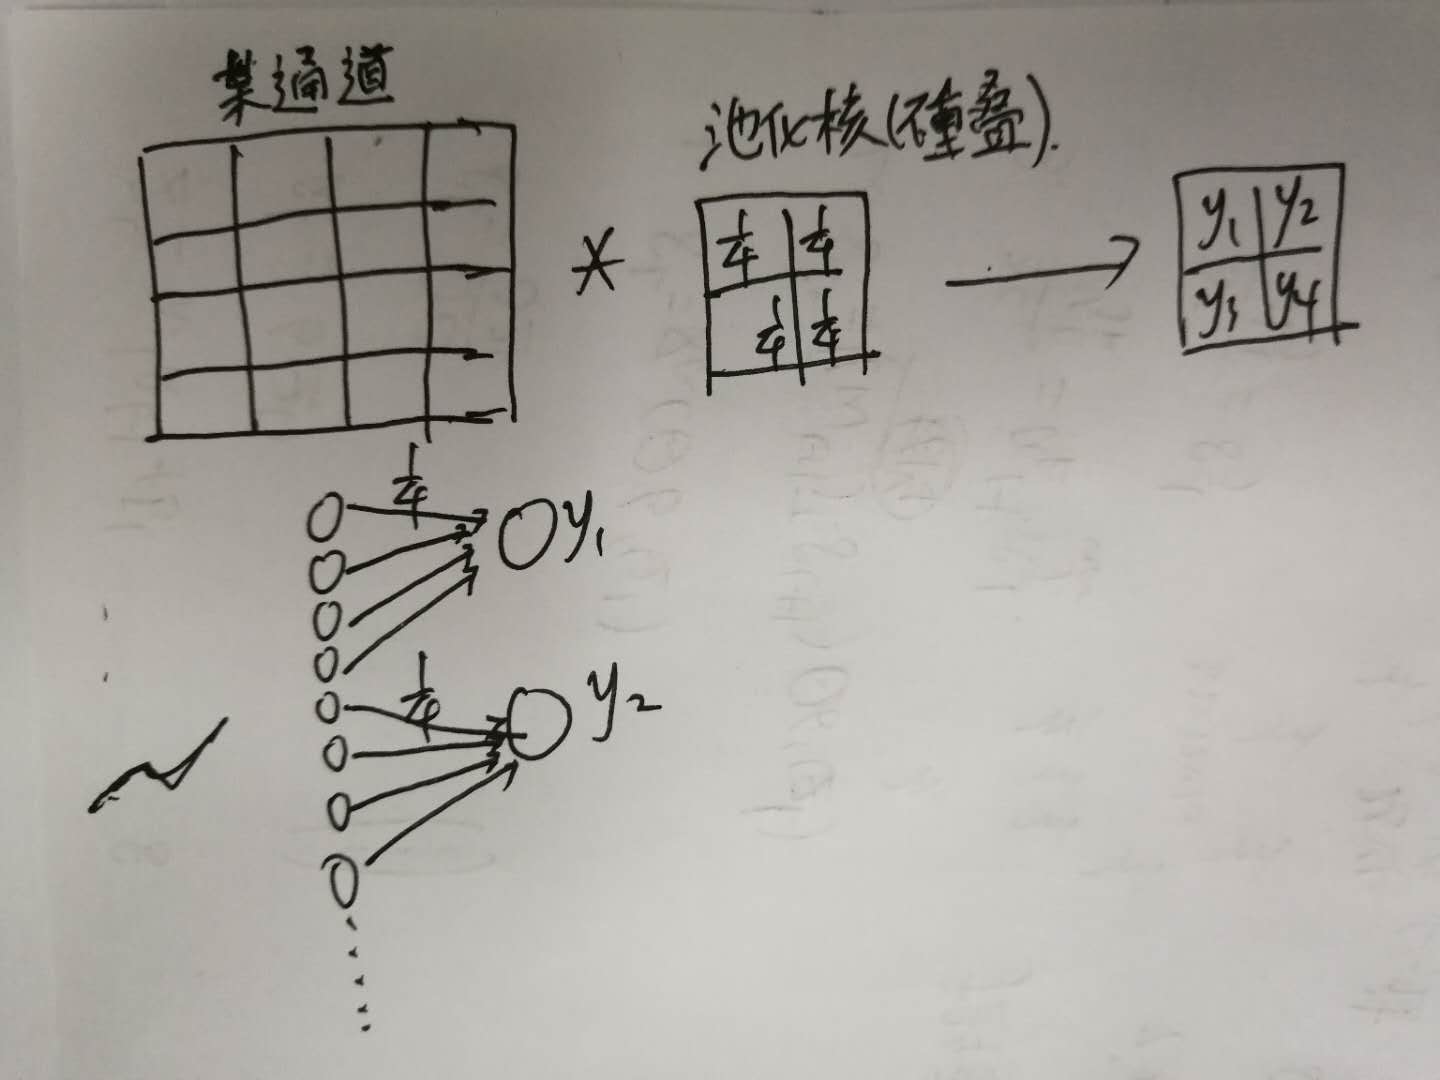 某通道
池化核(不重叠).
*
1/4 1/4
1/4 1/4
y1 y2
y3 y4
1/4
y1
1/4
y2